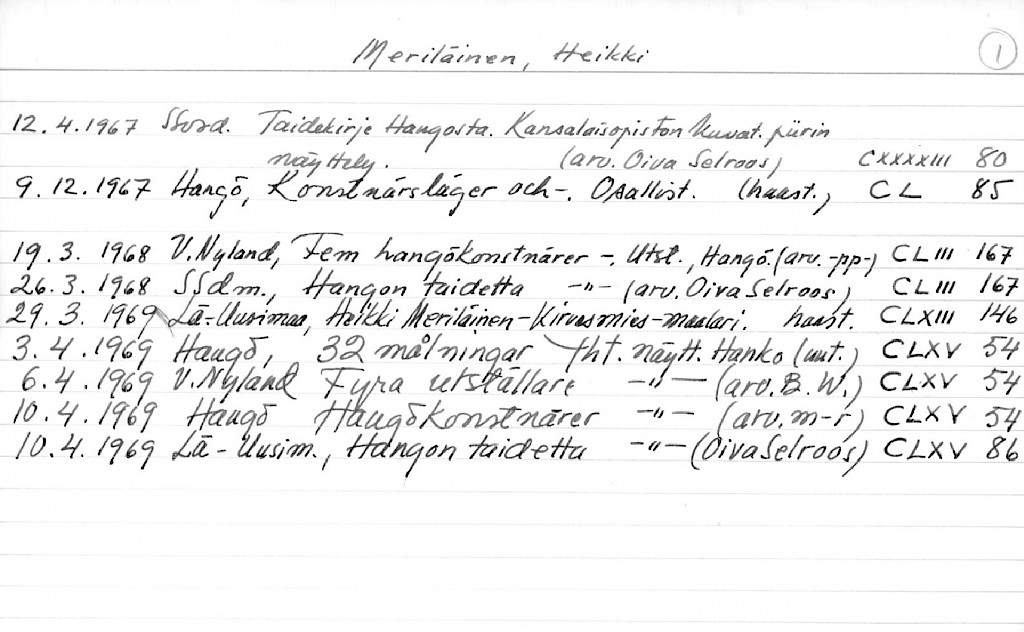 Meriläinen, Heikki 1
12.4.1967 SSosd. Taidekirje Hangosta. Kansalaisopiston kuvat. piirin
näyttely. (arv. Oiva Selroos) CXXXXIII 80
9.12.1967 Hangö, Konstnärsläger och -. Osallist. (haast.) CL 85
19.3.1968 V.Nyland, Fem hangökonstnärer -. Utst., Hangö. (arv. -pp-) CLIII 167
26.3.1968 SSdm., Hangon taidetta -"- (arv. Oiva Selroos) CLIII 167
29.3.1969 Lä-Uusimaa, Heikki Meriläinen-Kirvesmies-maalari. haast. CLXIII 146
3.4.1969 Hangö, 32 målningar Yht. näytt. Hanko (uut.) CLXV 54
6.4.1969 V.Nyland Fyra utställare -"- (arv. B.W.) CLXV 54
10.4.1969 Hangö Hangökonstnärer -"- (arv. m-r) CLXV 54
10.4.1969 Lä-Uusim., Hangon taidetta -"- (Oiva Selroos) CLXV 86